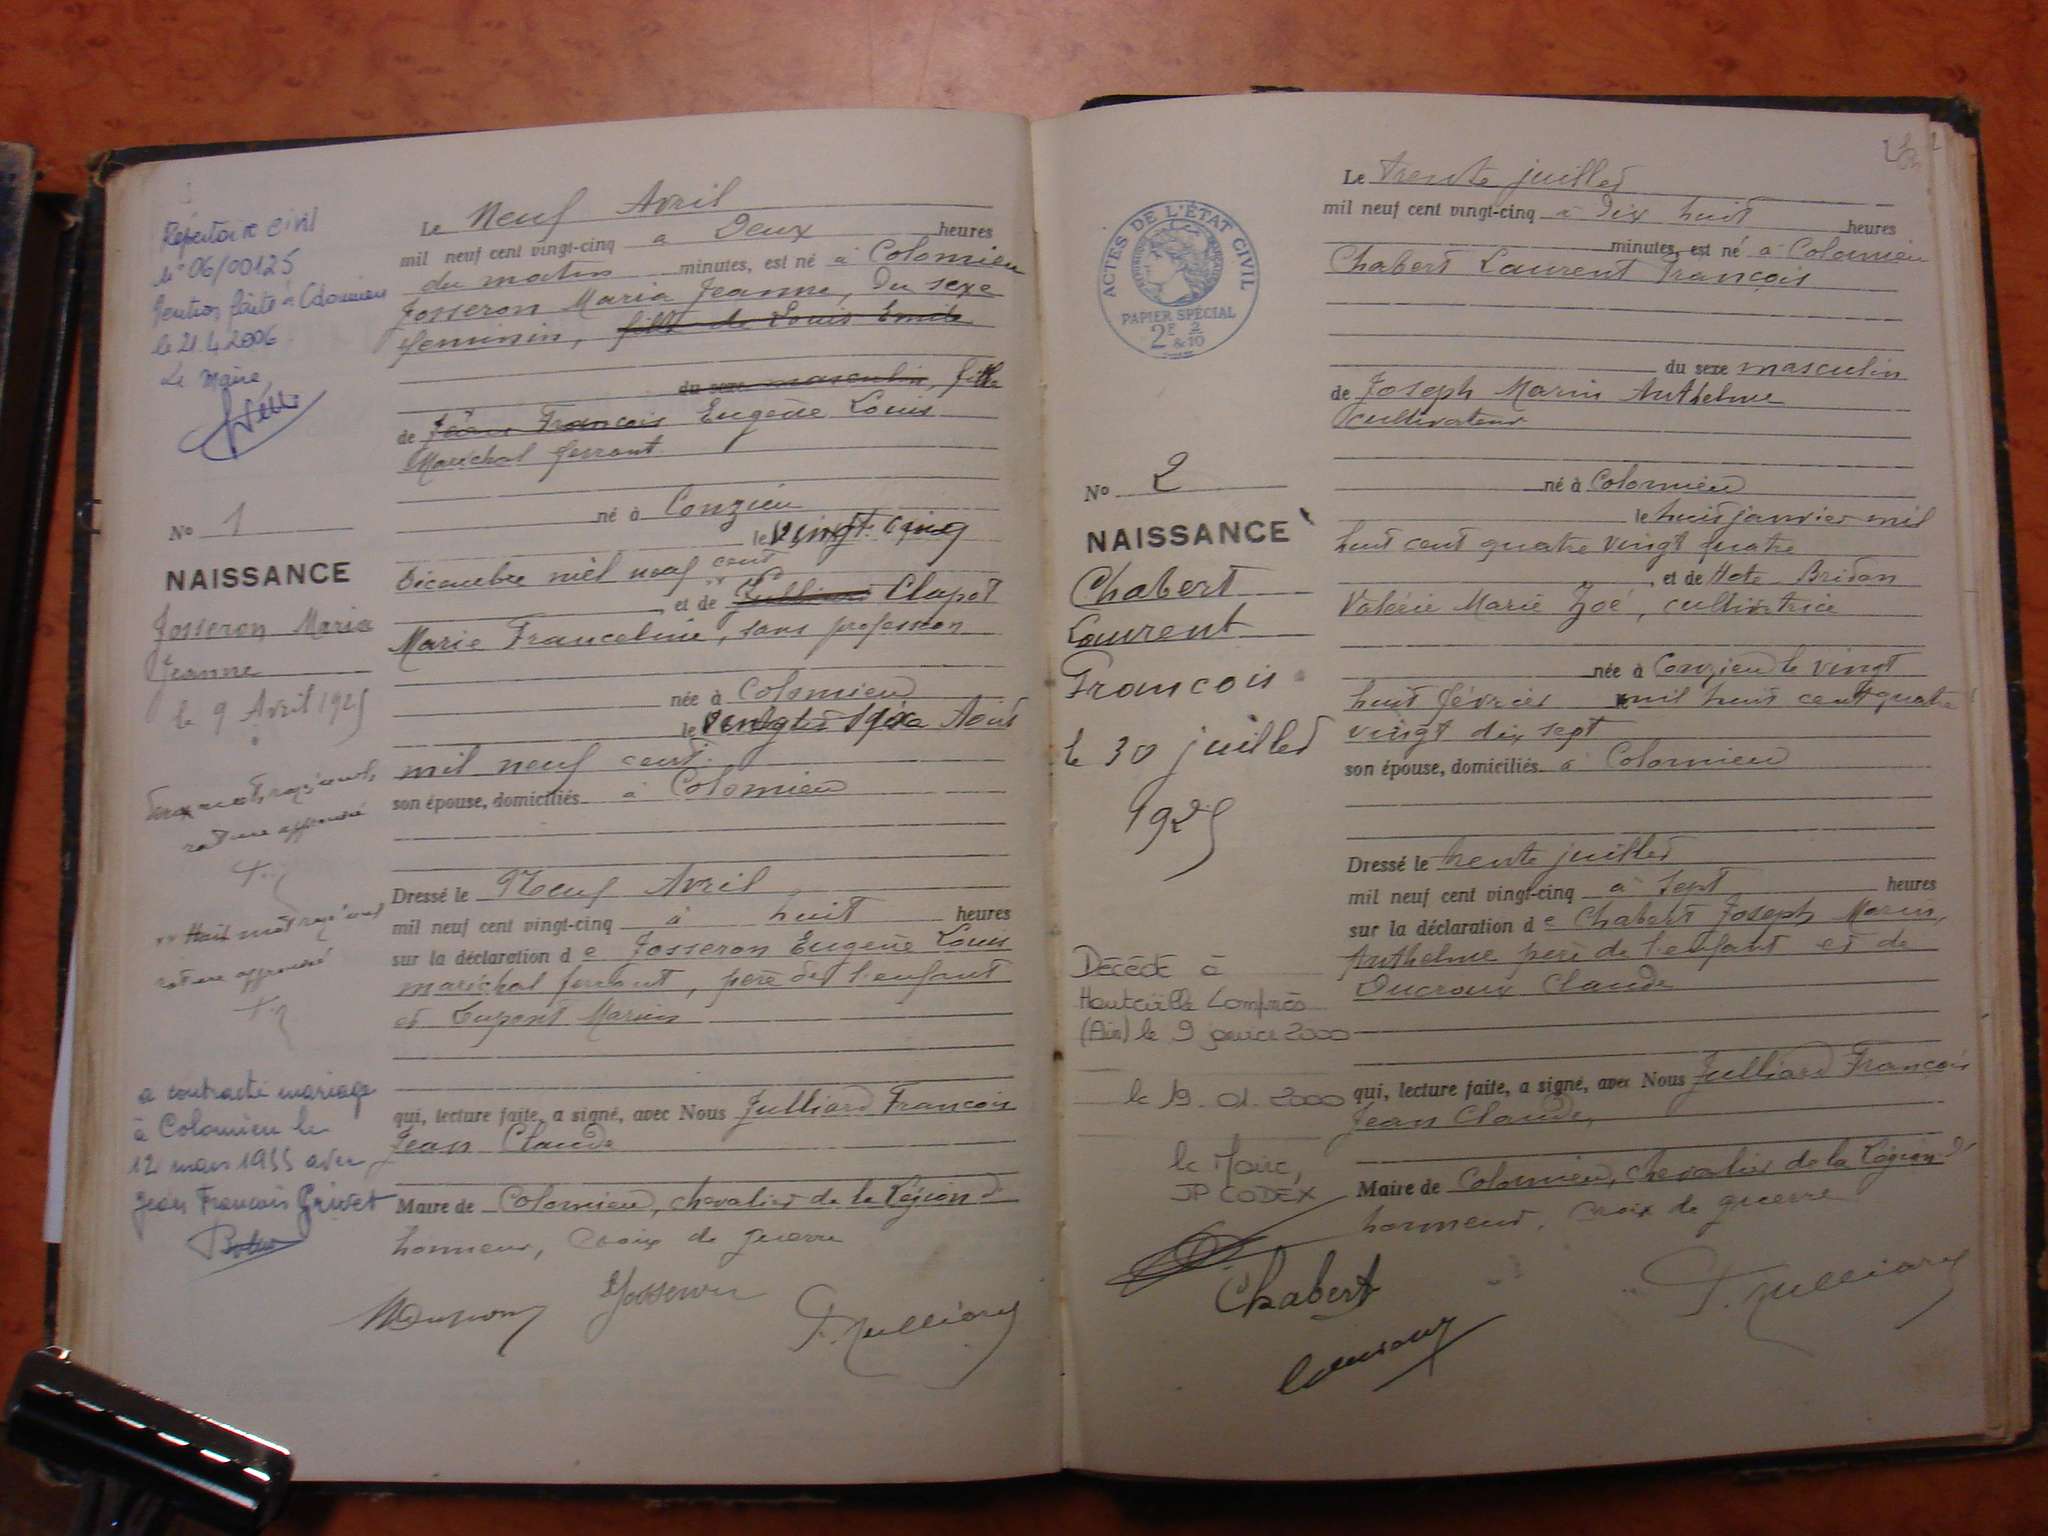 Répertoire civil
N° 06/00125
Mention faite à Colomieu
le 21.4.2006
Le Maire,
N° 1
NAISSANCE
Josseron Maria
Jeanne
le 9 Avril 1925
Deux mots rayés nuls
rature approuvée
Huit mots rayés nuls
rature approuvée
a contracté mariage
à Colomieu le
12 mars 1955 avec
Jean François Grivet
Le Neuf Avril
mil neuf cent vingt-cinq à Deux heures
du matin minutes, est né à Colomieu
Josseron Maria Jeanne, Du sexe
feminin, fille de Louis Emile
du sexe masculin, fille
de Jean François Eugène Louis
Maréchal ferrant
né à Conzieu
le vingt cinq
Décembre mil neuf cent
et de Julliard Clapot
Marie Franceline, sans profession
née à Colomieu
le Août
mil neuf cent
son épouse, domiciliés à Colomieu
Dressé le Neuf Avril
mil neuf cent vingt-cinq à huit heures
sur la déclaration de Josseron Eugène Louis
maréchal ferrant, père de l'enfant
et Dupont Marius
qui, lecture faite, a signé, avec Nous Julliard François
Jean Claude
Maire de Colomieu, chevalier de la Légion d'
honneur, Croix de guerre
MDupont
Josseron
F. Julliard
ACTES DE L'ÉTAT CIVIL
PAPIER SPÉCIAL
2F & 2/10
N° 2
NAISSANCE
Chabert
Laurent
François
le 30 juillet
1925
Décédé à
Hauteville Lompnès
(Ain) le 9 janvier 2000
le 19.01.2000
le Maire,
JP CODEX
Le trente juillet
mil neuf cent vingt-cinq à Dix huit heures
minutes, est né à Colomieu
Chabert Laurent François
du sexe masculin
de Joseph Marin Anthelme
cultivateur
né à Colomieu
le huit janvier mil
huit cent quatre vingt quatre
, et de Hote Bridan
Valérie Marie Zoé, cultivatrice
née à Conzieu le vingt
huit février mil huit cent quatre
vingt dix sept
son épouse, domiciliés à Colomieu
Dressé le trente juillet
mil neuf cent vingt-cinq à sept heures
sur la déclaration de Chabert Joseph Marin
Anthelme père de l'enfant et de
Ducroux Claude
qui, lecture faite, a signé, avec Nous Julliard François
Jean Claude,
Maire de Colomieu, chevalier de la Légion d'
honneur, Croix de guerre
Chabert
F. Julliard